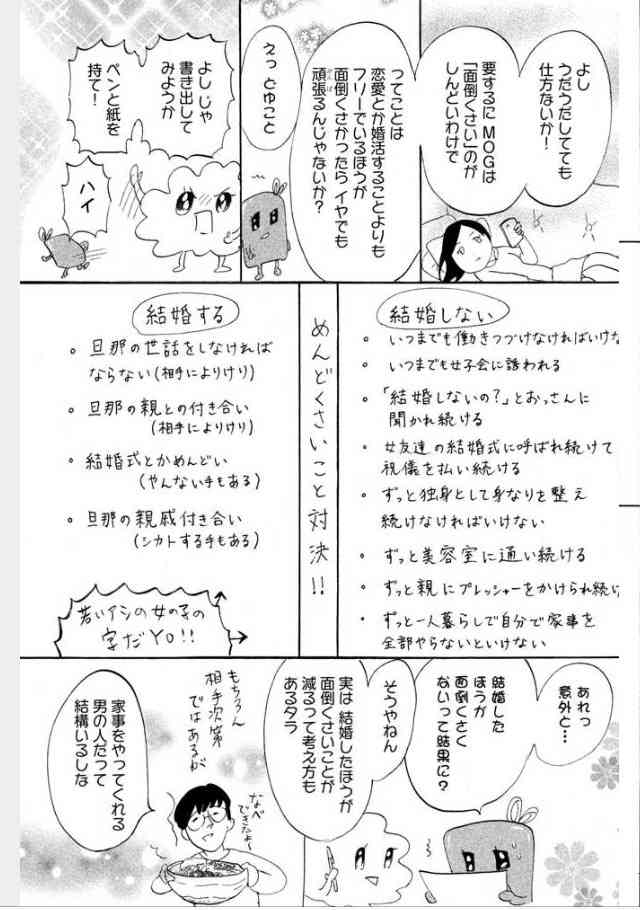 よし
うだうだしてても
仕方ないか！
要するに MOGは
「面倒くさい」のが
しんどいわけで
ってことは
恋愛とか婚活することよりも
フリーでいるほうが
面倒くさかったら イヤでも
頑張るんじゃないか？
がんば
えっ どゆこと
よし じゃ
書き出して
みようか
ペンと紙を
持て！
ハイ
めんどくさいこと対決！！
結婚しない
。いつまでも働きつづけなければいけな
。いつまでも女子会に誘われる
。「結婚しないの？」とおっさんに
聞かれ続ける
。女友達の結婚式に呼ばれ続けて
祝儀を払い続ける
。ずっと独身として身なりを整え
続けなければいけない
。ずっと美容室に通い続ける
。ずっと親にプレッシャーをかけられ続け
。ずっと一人暮らしで自分で家事を
全部やらないといけない
結婚する
。旦那の世話をしなければ
ならない（相手によりけり）
。旦那の親との付き合い
（相手によりけり）
。結婚式とかめんどい
（やんない手もある）
。旦那の親戚付き合い
（シカトする手もある）
若いアシの女の子の
字だYO！！
あれっ
意外と…
結婚した
ほうが
面倒くさく
ないって結果に？
そうやねん
実は 結婚したほうが
面倒くさいことが
減るって考え方も
あるタラ
もちろん
相手次第
ではあるが
なべ
できたよ〜
家事をやってくれる
男の人だって
結構いるしな